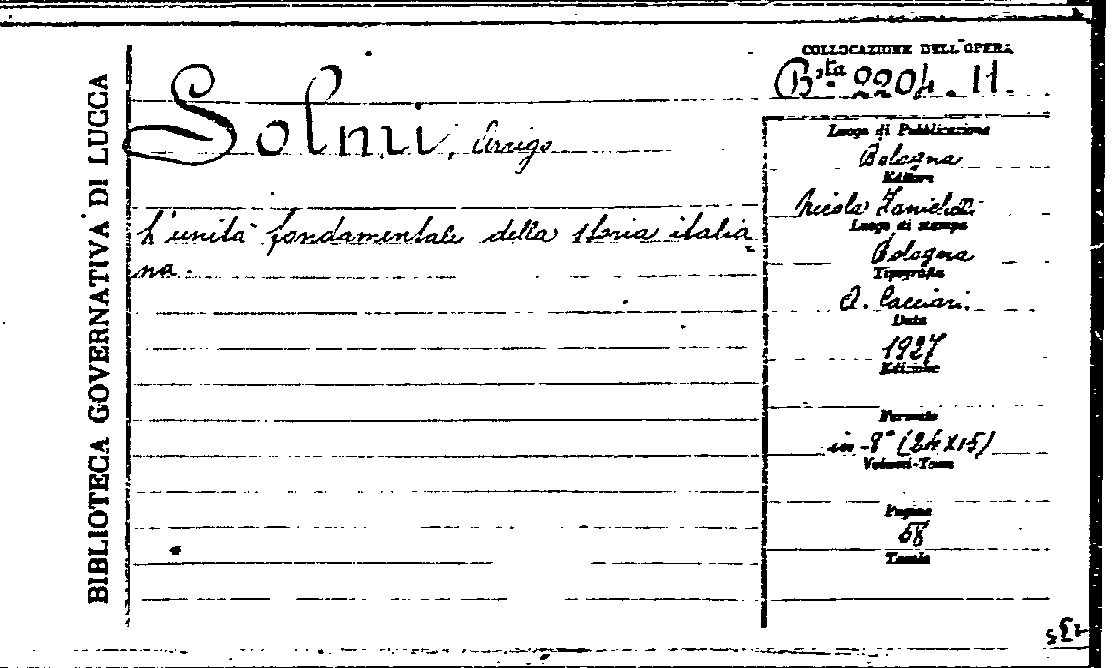 BIBLIOTECA GOVERNATIVA DI LUCCA
COLLOCAZIONE DELL'OPERA
B.ta 2204. 11.
Solmi, Arrigo
L'unità fondamentale della storia italia
na.
Luogo di Pubblicazione
Bologna
Editore
Nicola Zanichelli
Luogo di stampa
Bologna
Tipografia
A. Cacciari.
Data
1927
Edizione
Formato
in-8° (24x15)
Volumi-Tomi
Pagine
58
Tavole